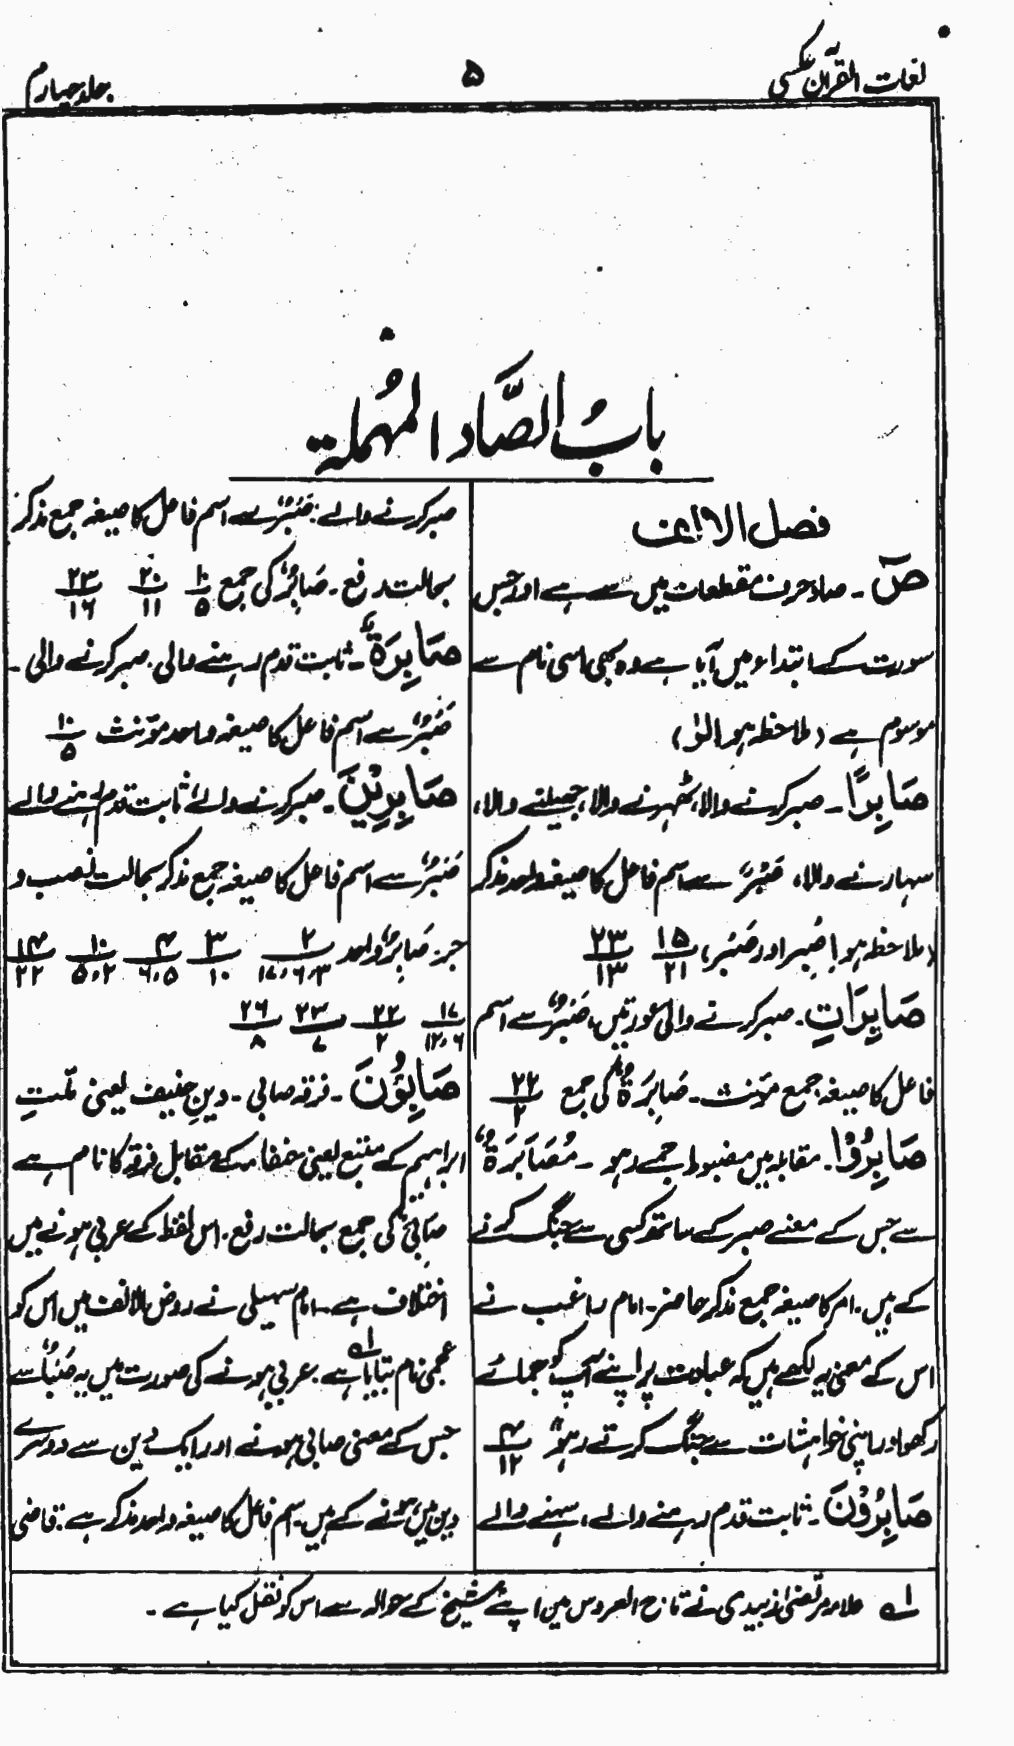 لغات القرآن عکسی
۵
جلد چہارم
بابُ الصَّاد المُہملة
فصل الالف
صٓ ۔ صاد حروف مقطعات میں سے ہے اور جس
سورت کے ابتداء میں آیا ہے وہ بھی اسی نام سے
موسوم ہے (ملاحظہ ہو الٓرٰ)
صَابِرًا ۔ صبر کرنے والا، ٹھہرنے والا، جھیلنے والا،
سہارنے والا، صَبْرٌ سے اسم فاعل کا صیغہ واحد مذکر
(ملاحظہ ہو اِصْبِر اور صَبْر) ۱۵/۲۱ ۲۳/۱۳
صَابِرَاتٍ ۔ صبر کرنے والی عورتیں، صَبْرٌ سے اسم
فاعل کا صیغہ جمع مؤنث ۔ صَابِرَةٌ کی جمع ۲۲/۲
صَابِرُوْا ۔ مقابلہ میں مضبوط جمے رہو ۔ مُصَابَرَةٌ
سے جس کے معنے صبر کے ساتھ کسی سے جنگ کرنے
کے ہیں ۔ امر کا صیغہ جمع مذکر حاضر ۔ امام راغب نے
اس کے معنی یہ لکھے ہیں کہ عبادت پر اپنے آپ کو جمائے
رکھو اور اپنی خواہشات سے جنگ کرتے رہو ۴/۱۲
صَابِرُوْنَ ۔ ثابت قدم رہنے والے، سہنے والے
صبر کرنے والے ۔ صَبْرٌ سے اسم فاعل کا صیغہ جمع مذکر
بحالت رفع ۔ صَابِرٌ کی جمع ۱۰/۵ ۲۰/۱۱ ۲۳/۱۶
صَابِرَةٌ ۔ ثابت قدم رہنے والی ۔ صبر کرنے والی ۔
صَبْرٌ سے اسم فاعل کا صیغہ واحد مؤنث ۱۰/۵
صَابِرِيْنَ ۔ صبر کرنے والے، ثابت قدم رہنے والے
صَبْرٌ سے اسم فاعل کا صیغہ جمع مذکر بحالت نصب و
جر ۔ صَابِرٌ واحد ۲/۳،۶،۱۷ ۳/۱۰ ۴/۵،۶ ۱۰/۲،۵ ۱۴/۲۲
۱۷/۶،۱۲ ۲۲/۲ ۲۳/۷ ۲۶/۸
صَابِئُوْنَ ۔ فرقہ صابی ۔ دینِ حنیف یعنی ملّتِ
ابراہیم کے متبع یعنی حنفاء کے مقابل فرقہ کا نام ہے
صَابِئٌ کی جمع بحالت رفع ۔ اس لفظ کے عربی ہونے میں
اختلاف ہے ۔ امام سہیلی نے روض الانف میں اس کو
عجمی نام بتایا ہے لہ ۔ عربی ہونے کی صورت میں یہ صَبَأَ سے
جس کے معنی صابی ہونے اور ایک دین سے دوسرے
دین میں ہونے کے ہیں ۔ اسم فاعل کا صیغہ واحد مذکر ہے ۔ قاضی
لہ علامہ مرتضیٰ زبیدی نے تاج العروس میں اپنے شیخ کے حوالہ سے اس کو نقل کیا ہے ۔